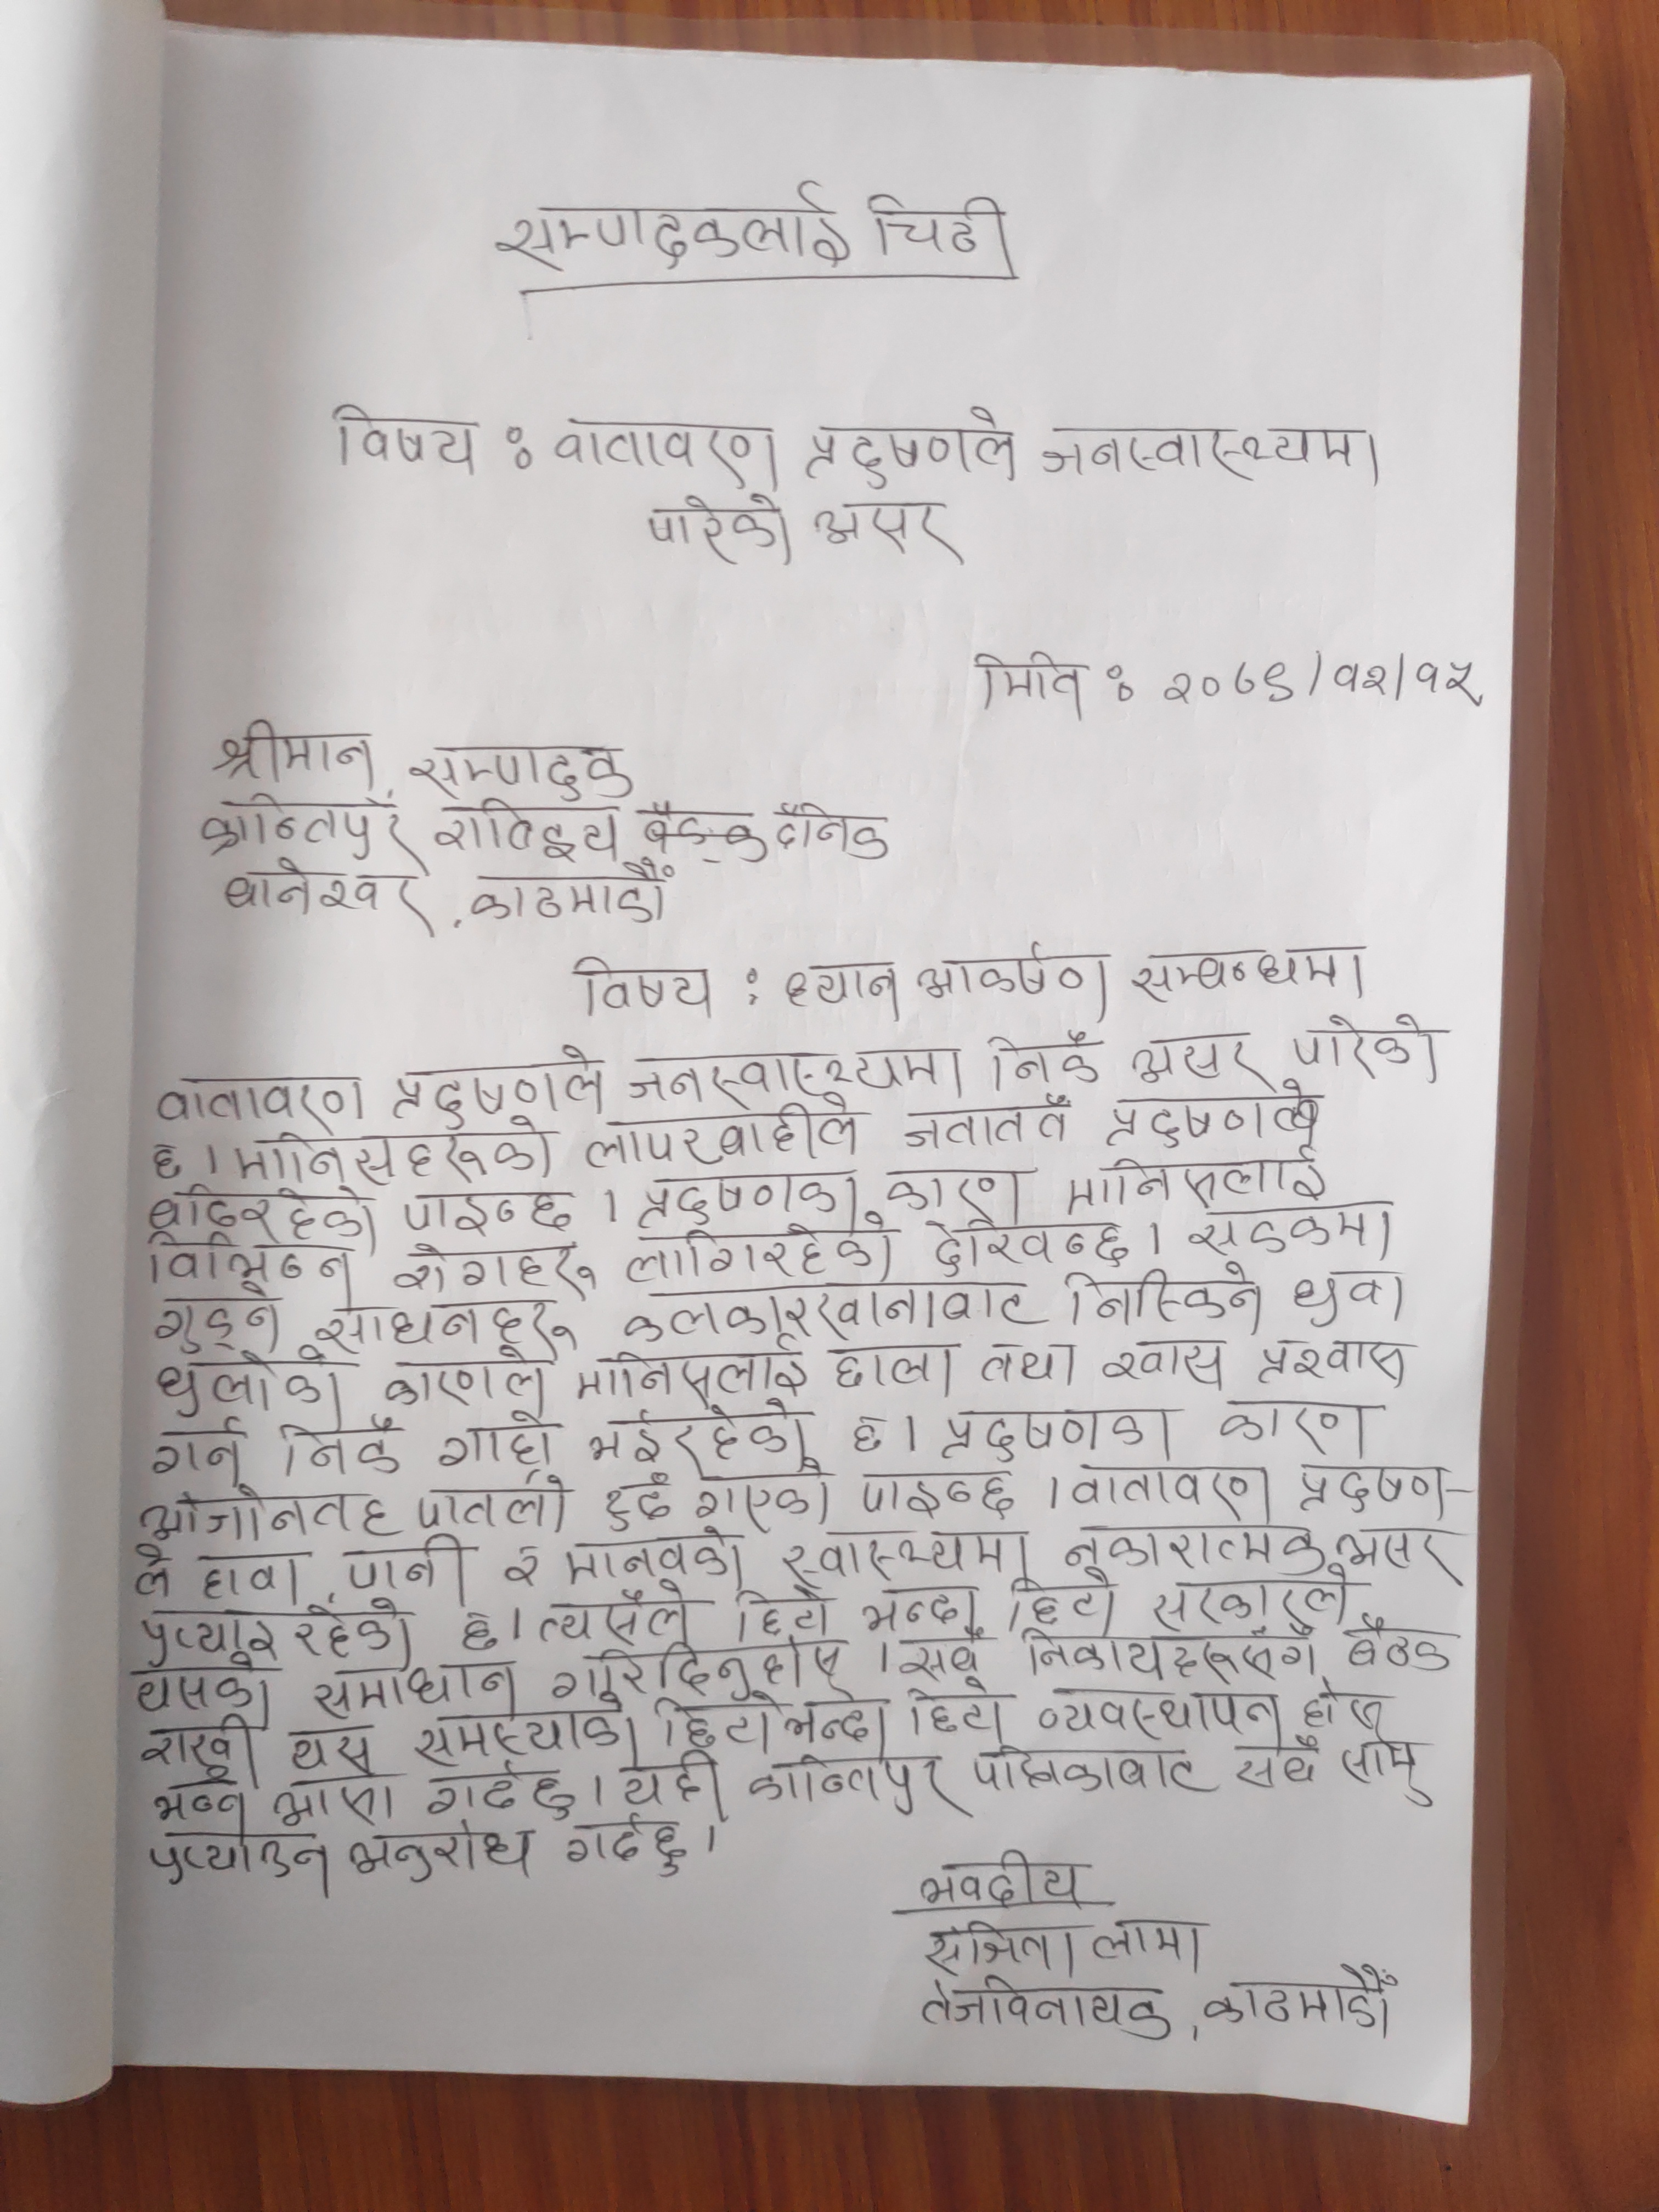 सम्पादकलाई चिठी
विषय : वातावरण प्रदुषणले जनस्वास्थ्यमा
पारेको असर
मिति : २०७९/१२/१५
श्रीमान सम्पादक
कान्तिपुर रातिष्ट्रय दैनिक
थानेश्वर, काठमाडौं
विषय : ध्यान आकर्षण सम्बन्धमा
वातावरण प्रदुषणले जनस्वास्थ्यमा निकै असर पारेको
छ । मानिसहरूको लापरवाहीले जताततै प्रदुषणले
बढिरहेको पाइन्छ । प्रदुषणका कारण मानिसलाई
विभिन्न रोगहरू लागिरहेको देखिन्छ । सडकमा
गुड्ने साधनहरू कलकारखानाबाट निस्किने धुवा
धुलोको कारणले मानिसलाई छाला तथा श्वास प्रश्वास
गर्न निकै गाह्रो भईरहेको छ । प्रदुषणका कारण
ओजोनतह पातलो हुदै गएको पाइन्छ । वातावरण प्रदुषण-
ले हावा, पानी र मानवको स्वास्थ्यमा नकारात्मक असर
पुर्‍याइरहेको छ । त्यसैले छिटो भन्दा छिटो सरकारले
यसको समाधान गरिदिनुहोस । सबै निकायहरूसंग बैठक
राखी यस समस्याको छिटोभन्दा छिटो व्यवस्थापन होस
भन्ने आसा गर्दछु । यही कान्तिपुर पत्रिकाबाट सबै सामु
पुर्‍याउन अनुरोध गर्दछु ।
भवदीय
संजिता लामा
तेजविनायक, काठमाडौँ